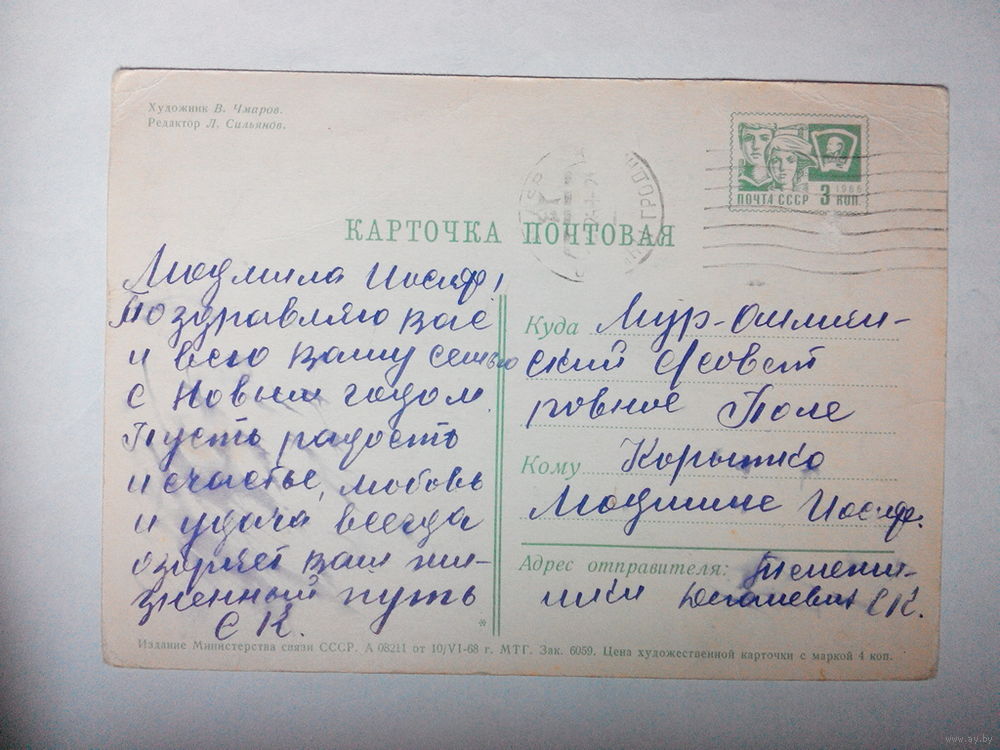 Художник В. Чмаров.
Редактор Л. Сильянов.
1966
ПОЧТА СССР 3 КОП.
КАРТОЧКА ПОЧТОВАЯ
Людмила Иосиф!
Поздравляю вас
и всю вашу семью
с Новым годом.
Пусть радость
и счастье, любовь
и удача всегда
озаряет ваш жи-
зненный путь
С К.
Куда Мур-Ошмян-
ский с/совет
ровное Поле
Кому Корытко
Людмиле Иосиф.
Адрес отправителя:
С К.
*
Издание Министерства связи СССР. А 08211 от 10/VI-68 г. МТГ. Зак. 6059. Цена художественной карточки с маркой 4 коп.
www.ay.by